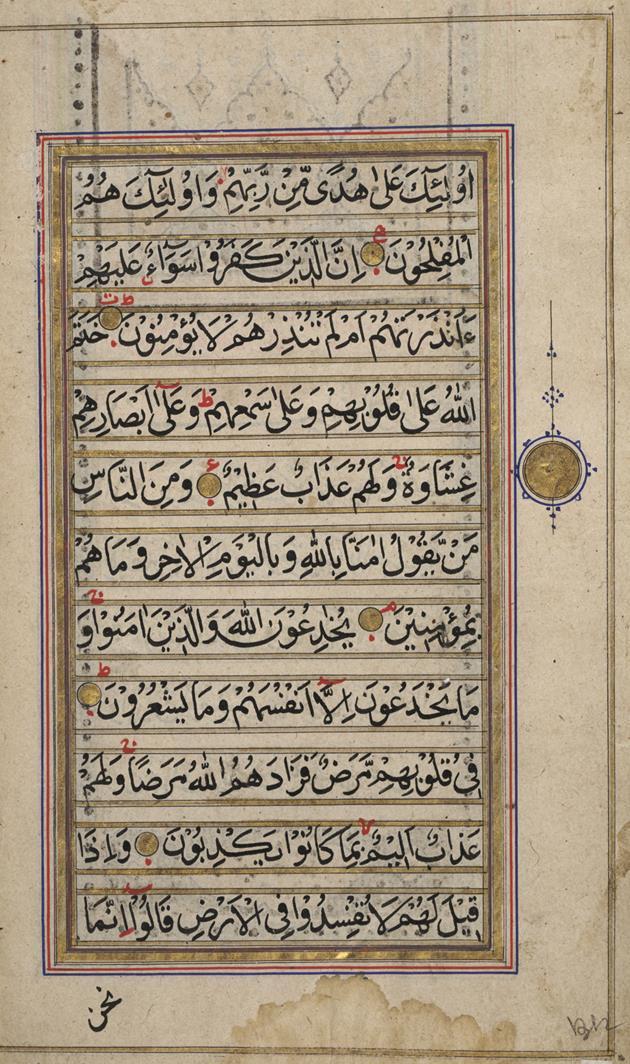 اُولٰٓئِكَ عَلٰى هُدًى مِّنْ رَّبِّهِمْ وَاُولٰٓئِكَ هُمُ
الْمُفْلِحُوْنَ ۞ ج اِنَّ الَّذِيْنَ كَفَرُوْا سَوَآءٌ عَلَيْهِمْ
ءَاَنْذَرْتَهُمْ اَمْ لَمْ تُنْذِرْهُمْ لَا يُؤْمِنُوْنَ ۞ خَتَمَ
اللّٰهُ عَلٰى قُلُوْبِهِمْ وَعَلٰى سَمْعِهِمْ ط وَعَلٰٓى اَبْصَارِهِمْ
غِشَاوَةٌ ز وَلَهُمْ عَذَابٌ عَظِيْمٌ ۞ ع وَمِنَ النَّاسِ
مَنْ يَّقُوْلُ اٰمَنَّا بِاللّٰهِ وَبِالْيَوْمِ الْاٰخِرِ وَمَا هُمْ
بِمُؤْمِنِيْنَ ۞ م يُخٰدِعُوْنَ اللّٰهَ وَالَّذِيْنَ اٰمَنُوْا ج وَ
مَا يَخْدَعُوْنَ اِلَّآ اَنْفُسَهُمْ وَمَا يَشْعُرُوْنَ ۞ ط
فِيْ قُلُوْبِهِمْ مَّرَضٌ فَزَادَهُمُ اللّٰهُ مَرَضًا ج وَلَهُمْ
عَذَابٌ اَلِيْمٌ بِمَا كَانُوْا يَكْذِبُوْنَ ۞ وَاِذَا
قِيْلَ لَهُمْ لَا تُفْسِدُوْا فِي الْاَرْضِ قَالُوْٓا اِنَّمَا
نحن